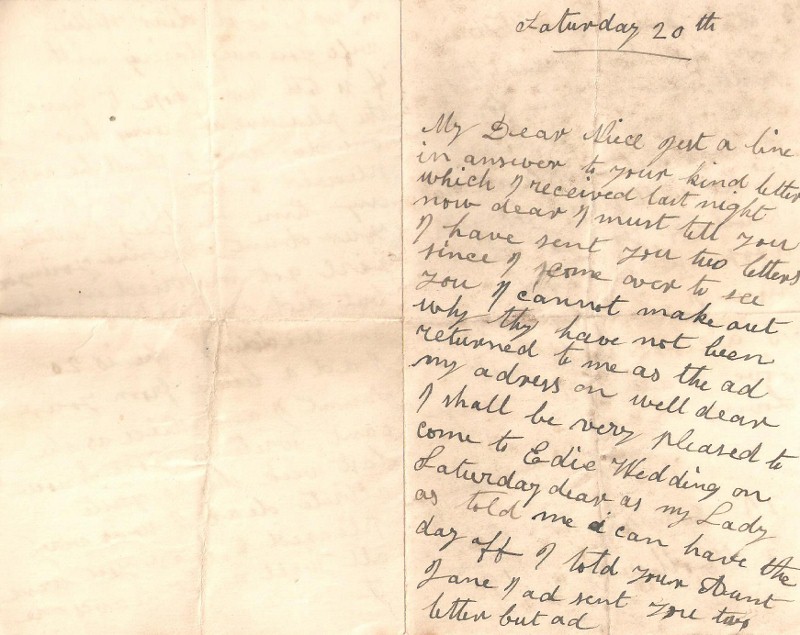 Saturday 20th
My Dear Niece just a line
in answer to your kind letter
which I received last night
now dear I must tell you
I have sent you two letters
since I come over to see
you I cannot make out
why thy have not been
returned to me as the ad
my adress on well dear
I shall be very pleased to
come to Edie Wedding on
Saturday dear as my Lady
as told me i can have the
day off I told your Aunt
Jane I ad sent you two
letter but ad